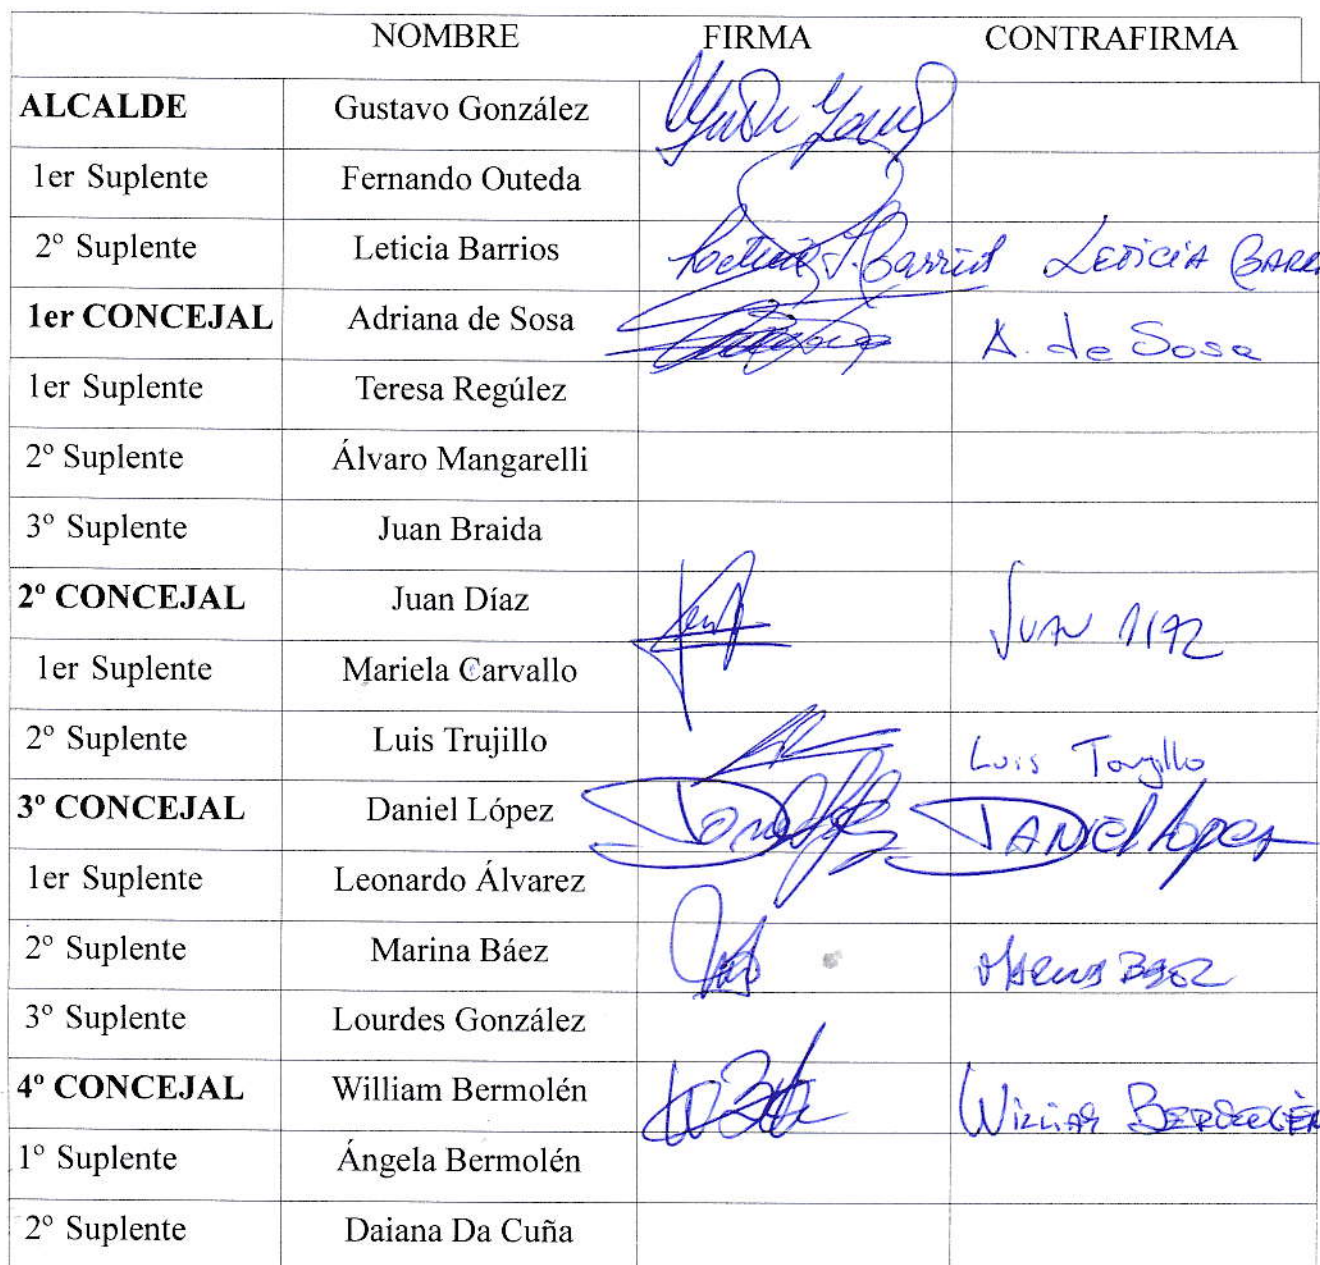 NOMBRE FIRMA CONTRAFIRMA
ALCALDE Gustavo González
1er Suplente Fernando Outeda
2º Suplente Leticia Barrios Leticia J. Barrios LETICIA BARR
1er CONCEJAL Adriana de Sosa A. de Sosa
1er Suplente Teresa Regúlez
2º Suplente Álvaro Mangarelli
3º Suplente Juan Braida
2º CONCEJAL Juan Díaz JUAN
1er Suplente Mariela Carvallo
2º Suplente Luis Trujillo Luis
3º CONCEJAL Daniel López DANIEL Lopez
1er Suplente Leonardo Álvarez
2º Suplente Marina Báez
3º Suplente Lourdes González
4º CONCEJAL William Bermolén
1º Suplente Ángela Bermolén
2º Suplente Daiana Da Cuña